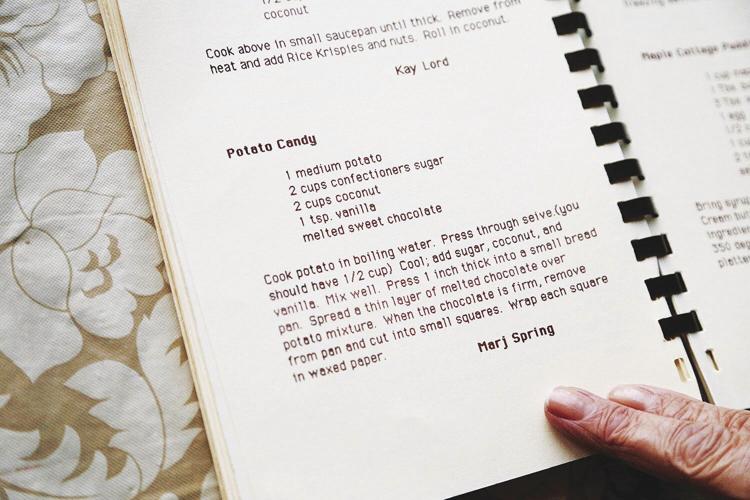 coconut
Cook above in small saucepan until thick. Remove from
heat and add Rice Krispies and nuts. Roll in coconut.
Kay Lord
Potato Candy
1 medium potato
2 cups confectioners sugar
2 cups coconut
1 tsp. vanilla
melted sweet chocolate
Cook potato in boiling water. Press through seive.(you
should have 1/2 cup) Cool; add sugar, coconut, and
vanilla. Mix well. Press 1 inch thick into a small bread
pan. Spread a thin layer of melted chocolate over
potato mixture. When the chocolate is firm, remove
from pan and cut into small squares. Wrap each square
in waxed paper.
Marj Spring
Maple Cottage
1 cup
1 egg
1/2
Bring
Cream
ingredien
350 de
platter